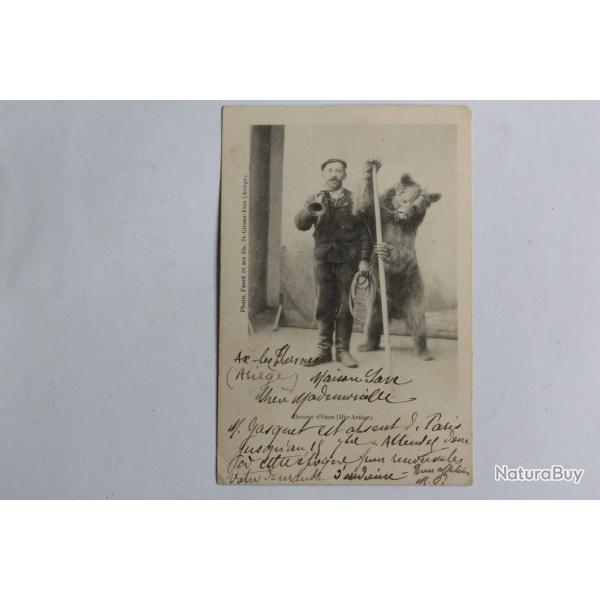 Photo. Fauré et ses fils, St-Girons-Foix (Ariège)
Ax-les Thermes
(Ariège) Maison Save
Chère Mademoiselle
Elevage d'Ours (Hte-Ariège)
M. Gasquet est absent de Paris
jusqu'au 15 Attendez donc
cette époque pour renouveler
votre demande
M. G
NaturaBuy